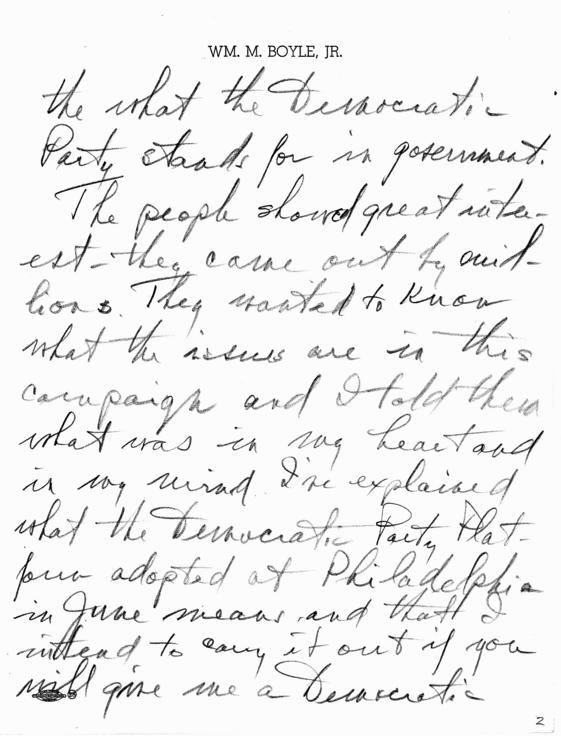 WM. M. BOYLE, JR.
the what the Democratic
Party stands for in government.
The people showed great inter-
est - they came out by mil-
lions. They wanted to know
what the issues are in this
campaign and I told them
what was in my heart and
in my mind. I've explained
what the Democratic Party Plat-
form adopted at Philadelphia
in June means and that I
intend to carry it out if you
will give me a Democratic
2